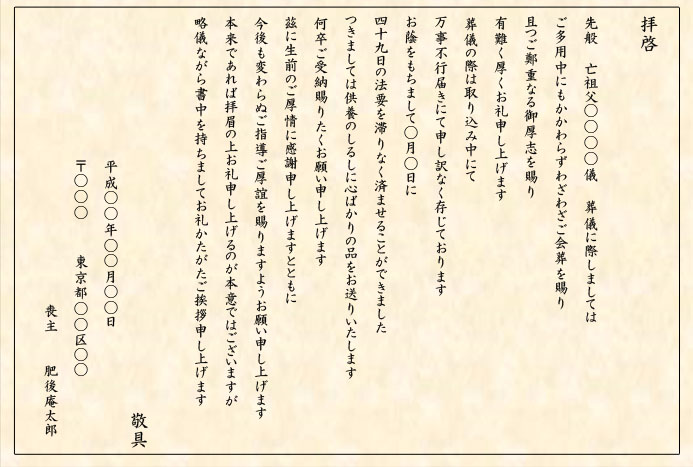 拝啓
先般　亡祖父〇〇〇〇儀　葬儀に際しましては
ご多用中にもかかわらずわざわざご会葬を賜り
且つご鄭重なる御厚志を賜り
有難く厚くお礼申し上げます
葬儀の際は取り込み中にて
万事不行届きにて申し訳なく存じております
お蔭をもちまして〇月〇日に
四十九日の法要を滞りなく済ませることができました
つきましては供養のしるしに心ばかりの品をお送りいたします
何卒ご受納賜りたくお願い申し上げます
茲に生前のご厚情に感謝申し上げますとともに
今後も変わらぬご指導ご厚誼を賜りますようお願い申し上げます
本来であれば拝眉の上お礼申し上げるのが本意ではございますが
略儀ながら書中を持ちましてお礼かたがたご挨拶申し上げます
敬具
平成〇〇年〇〇月〇〇日
〒〇〇〇　東京都〇〇区〇〇
喪主　肥後庵太郎